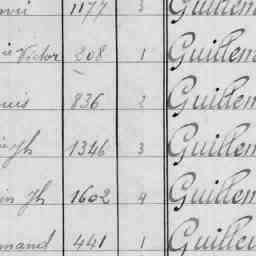 1177 3 Guillem
Victor 208 1 Guillem
uis 836 2 Guillem
Jh 1346 3 Guillem
in Jh 1602 4 Guillem
mand 441 1 Guille